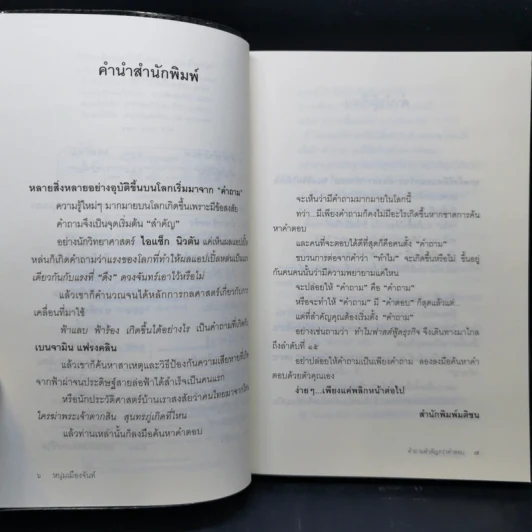 คำนำสำนักพิมพ์
หลายสิ่งหลายอย่างอุบัติขึ้นบนโลกเริ่มมาจาก "คำถาม"
ความรู้ใหม่ๆ มากมายบนโลกเกิดขึ้นเพราะมีข้อสงสัย
คำถามจึงเป็นจุดเริ่มต้น "สำคัญ"
อย่างนักวิทยาศาสตร์ ไอแซ็ก นิวตัน แค่เห็นผลแอปเปิ้ล
หล่นก็เกิดคำถามว่าแรงของโลกที่ทำให้ผลแอปเปิ้ลหล่นเป็นแรง
เดียวกันกับแรงที่ "ดึง" ดวงจันทร์เอาไว้หรือไม่
แล้วเขาก็คำนวณจนได้หลักการกลศาสตร์เกี่ยวกับการ
เคลื่อนที่มาใช้
ฟ้าแลบ ฟ้าร้อง เกิดขึ้นได้อย่างไร เป็นคำถามที่เกิดกับ
เบนจามิน แฟรงคลิน
แล้วเขาก็ค้นหาสาเหตุและวิธีป้องกันความเสียหายที่เกิด
จากฟ้าผ่าจนประดิษฐ์สายล่อฟ้าได้สำเร็จเป็นคนแรก
หรือนักประวัติศาสตร์บ้านเราสงสัยว่าคนไทยมาจากไหน
ใครฆ่าพระเจ้าตากสิน สุนทรภู่เกิดที่ไหน
แล้วท่านเหล่านั้นก็ลงมือค้นหาคำตอบ
๖ หนุ่มเมืองจันท์
จะเห็นว่ามีคำถามมากมายในโลกนี้
ทว่า...มีเพียงคำถามก็คงไม่มีอะไรเกิดขึ้นหากขาดการค้น
หาคำตอบ
และคนที่จะตอบได้ดีที่สุดก็คือคนตั้ง "คำถาม"
ขบวนการต่อจากคำว่า "ทำไม" จะเกิดขึ้นหรือไม่ ขึ้นอยู่
กับคนคนนั้นว่ามีความพยายามแค่ไหน
จะปล่อยให้ "คำถาม" คือ "คำถาม"
หรือจะทำให้ "คำถาม" มี "คำตอบ" ก็สุดแล้วแต่...
แต่ที่สำคัญคุณต้องเริ่มตั้ง "คำถาม"
อย่างเช่นถามว่า ทำไมฟาสต์ฟู้ดธุรกิจ จึงเดินทางมาไกล
ถึงลำดับที่ ๑๕
อย่าปล่อยให้คำถามเป็นเพียงคำถาม ลองลงมือค้นหาคำ
ตอบด้วยตัวคุณเอง
ง่ายๆ...เพียงแค่พลิกหน้าต่อไป
สำนักพิมพ์มติชน
คำถามสำคัญกว่าคำตอบ ๗